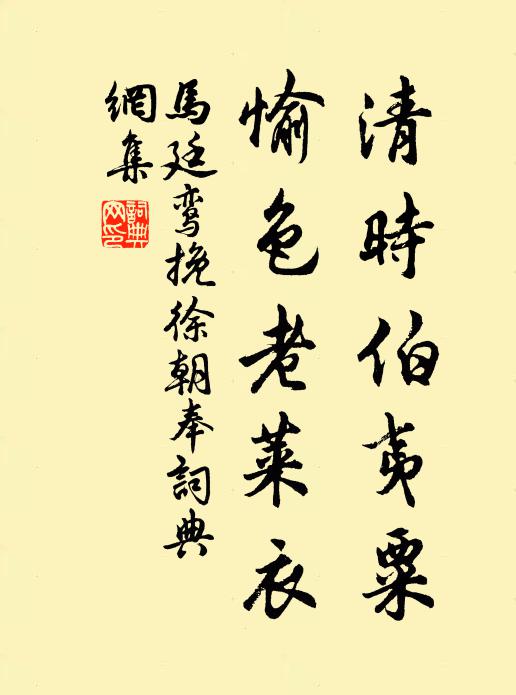 清時伯夷粟
愉色老萊衣
馬廷鸞挽徐朝奉詞典
網集
詞典網印